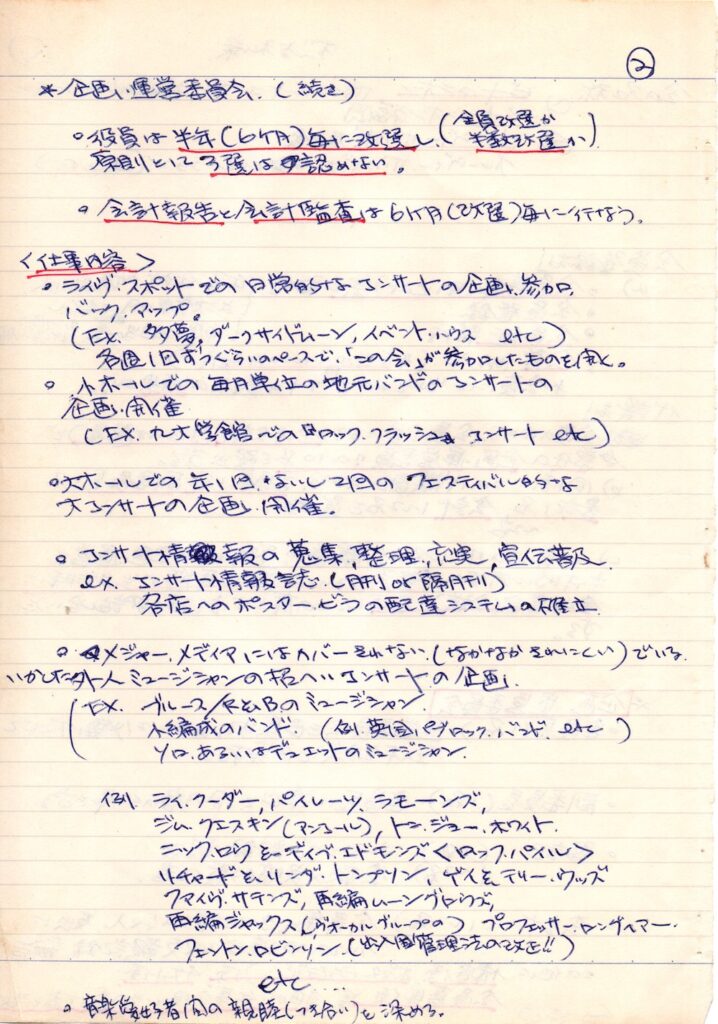 ②
＊企画、運営委員会.（続き）
○役員は半年（6ケ月）毎に改選し、（全員改選か 半数改選か）
原則として3選は認めない。
○会計報告と会計監査は6ケ月（改選）毎に行なう。
〈仕事内容〉
○ライヴ・スポットでの日常的なコンサートの企画、参加、
バック・アップ。
（Ex. 多夢、ダークサイドムーン、イベント・ハウス etc）
各週1回ずつぐらいのペースで、「この会」が参加したものを開く。
○小ホールでの毎月単位の地元バンドのコンサートの
企画・開催
（EX. 九大学館でのロック・フラッシュ コンサート etc）
○大ホールでの年1回、ないし2回のフェスティバル的な
大コンサートの企画・開催。
○コンサート情報の蒐集、整理、充実、宣伝普及
ex. コンサート情報誌.（月刊 or 隔月刊）
各店へのポスター・ビラの配達システムの確立
○メジャー・メディアにはカバーされない.（なかなかされにくい）でいる
いかした外人ミュージシャンの招へいコンサートの企画.
（EX. ブルース/R&Bのミュージシャン.
小編成のバンド.（例.英国パブロック・バンド. etc）
ソロ、あるいはデュエットのミュージシャン.
例. ライ・クーダー, パイレーツ, ラモーンズ,
ジム・クエスキン（アンコール）, トニー・ジョー・ホワイト.
ニック・ロウとデイヴ・エドモンズ〈ロック・パイル〉
リチャードとリンダ・トンプソン, ゲイとテリー・ウッズ
ファイヴ・サテンズ, 再編ムーングロウズ,
再編ジャックス（ヴォーカルグループの） プロフェッサー・ロングヘアー.
フェントン・ロビンソン.（出入国管理法の改正!!）
etc ....
○音楽愛好者間の親睦（つき合い）を深める.